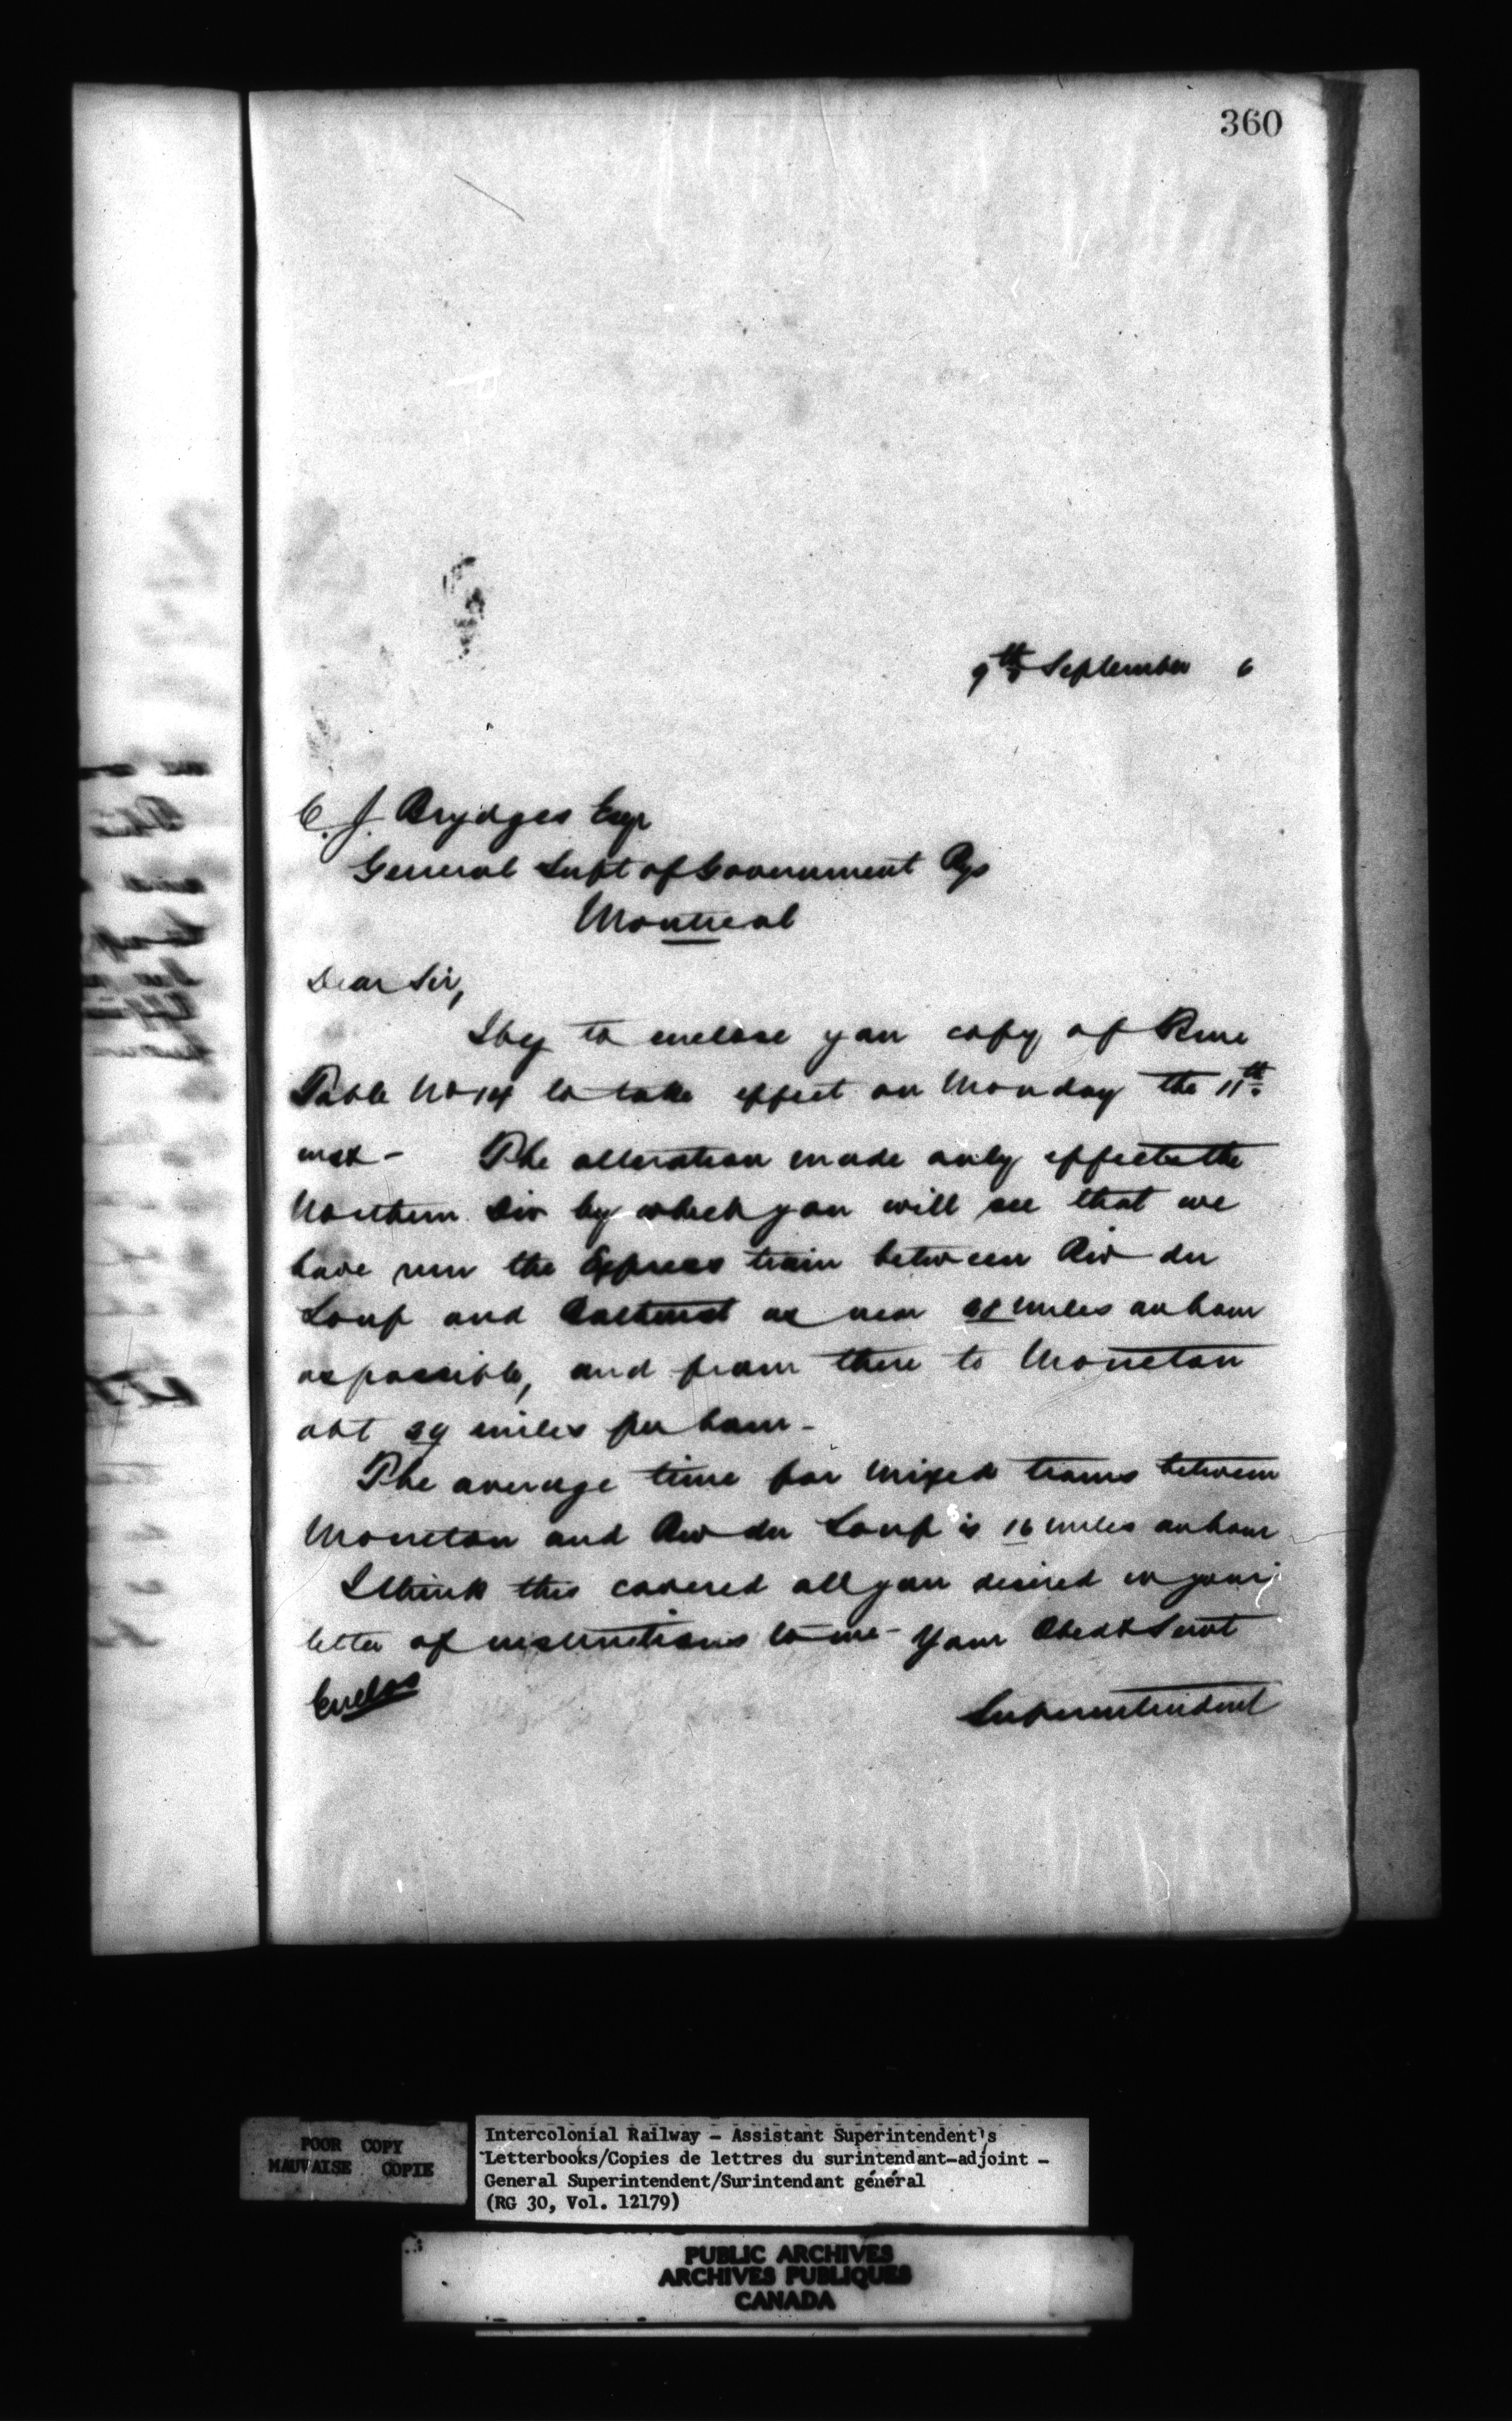 360
9th September 6
C. J. Brydges Esqr
General Supt of Government Rys
Montreal
Dear Sir,
I beg to enclose you copy of Time
Table No 14 to take effect on Monday the 11th
inst - The alteration made only effects the
Northern Div by which you will see that we
have run the Express train between Riv du
Loup and Bathurst as near 28 miles an hour
as possible, and from there to Moncton
abt 24 miles per hour -
The average time for Mixed trains between
Moncton and Riv du Loup is 16 miles an hour
I think this covered all you desired in your
letter of instructions to me - Your Obedt Servt
Enclos
Superintendent
POOR COPY
MAUVAISE COPIE
Intercolonial Railway - Assistant Superintendent's
Letterbooks/Copies de lettres du surintendant-adjoint -
General Superintendent/Surintendant général
(RG 30, Vol. 12179)
PUBLIC ARCHIVES
ARCHIVES PUBLIQUES
CANADA